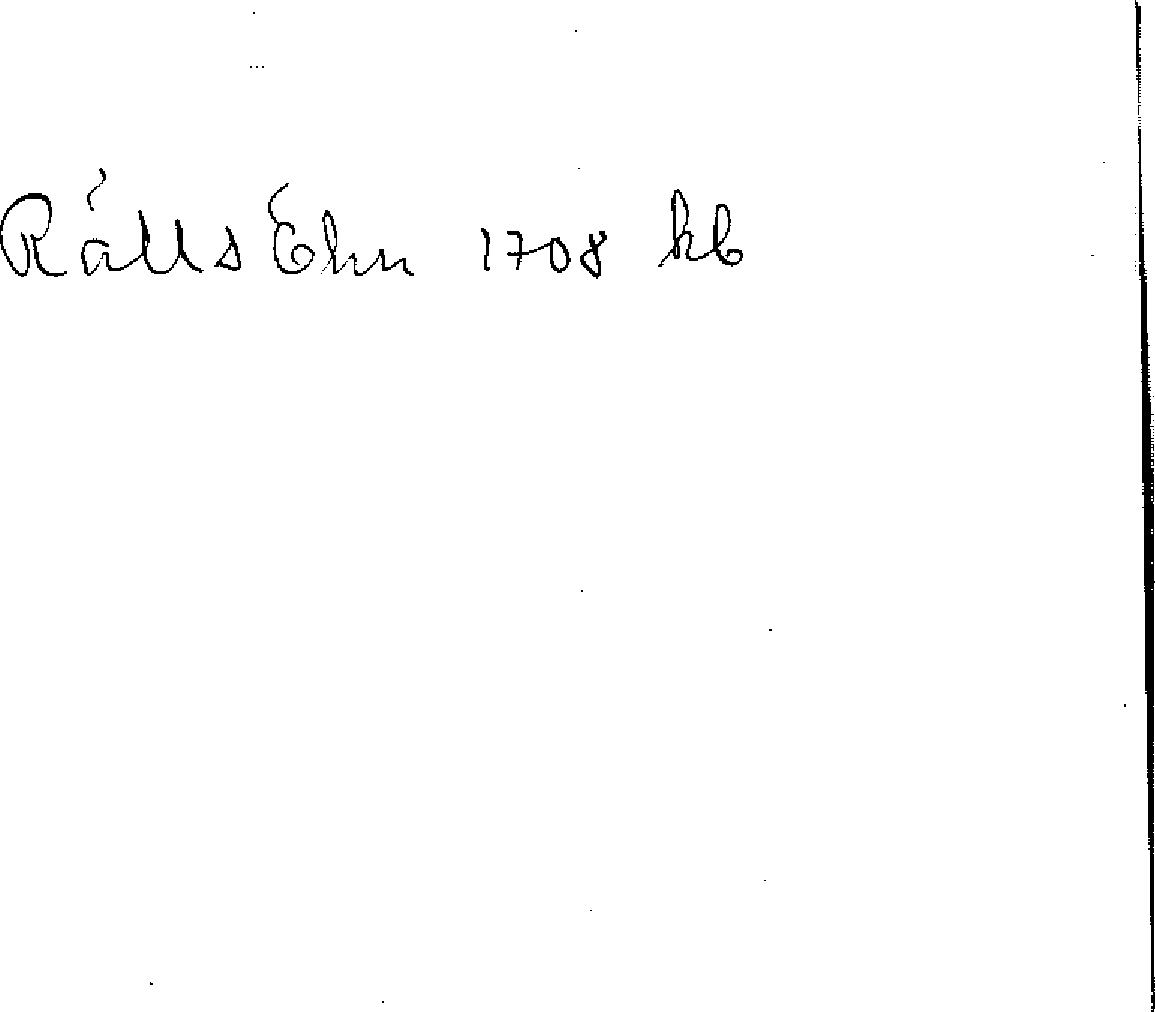 Rålls Ehn 1708 kb